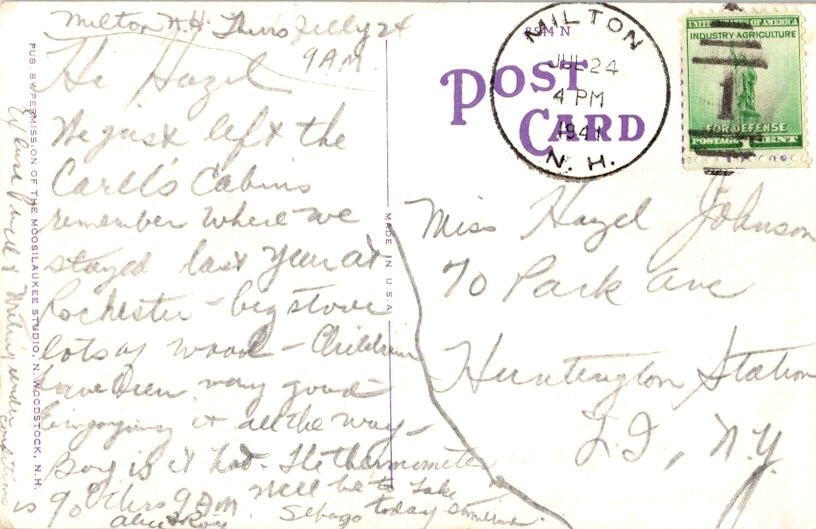 Milton N.H. Thurs July 24
9 AM.
Hi Hazel
We just left the
Carll's Cabins
remember where we
stayed last year at
Rochester - big stove
lots of wood - Children
have been very good
enjoying it all the way -
Boy is it hot. The thermometer
is 90 this 9 AM. Will be to Lake
Sebago today sometime
Alice & Roy
PUB. BY PERMISSION OF THE MOOSILAUKEE STUDIO, N. WOODSTOCK, N.H.
MADE IN U.S.A.
POST
CARD
MILTON
JUL 24
4 PM
1941
N. H.
UNITED STATES OF AMERICA
INDUSTRY AGRICULTURE
1
FOR DEFENSE
POSTAGE 1 CENT
Miss Hazel Johnson
70 Park Ave
Huntington Station
L.I., N.Y.